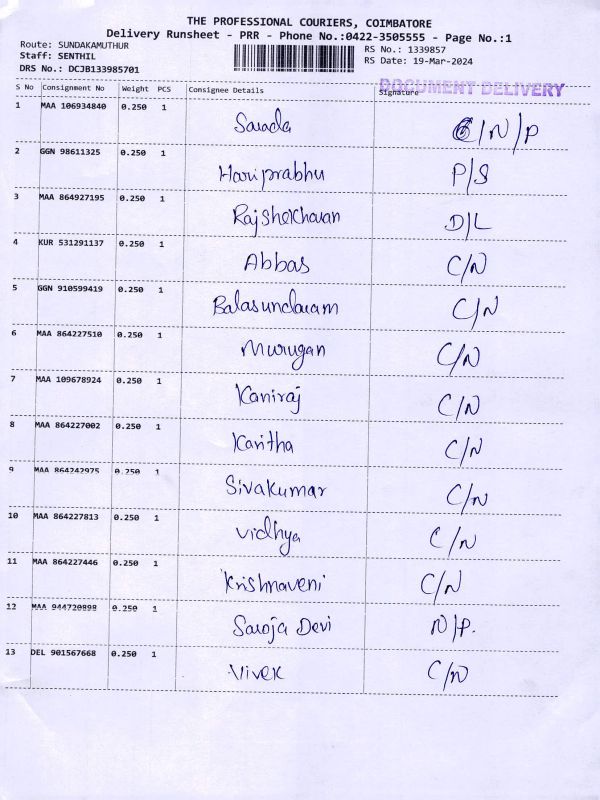 THE PROFESSIONAL COURIERS, COIMBATORE
Delivery Runsheet - PRR - Phone No.:0422-3505555 - Page No.:1
Route: SUNDAKAMUTHUR RS No.: 1339857
Staff: SENTHIL RS Date: 19-Mar-2024
DRS No.: DCJB133985701
DOCUMENT DELIVERY
S No Consignment No Weight PCS Consignee Details Signature
1 MAA 106934840 0.250 1 Sarada C/N/P
2 GGN 98611325 0.250 1 Hariprabhu P/S
3 MAA 864927195 0.250 1 Rajshekharan D/L
4 KUR 531291137 0.250 1 Abbas C/N
5 GGN 910599419 0.250 1 Balasundaram C/N
6 MAA 864227510 0.250 1 Murugan C/N
7 MAA 109678924 0.250 1 Kaniraj C/N
8 MAA 864227002 0.250 1 Kavitha C/N
9 MAA 864242975 0.250 1 Sivakumar C/N
10 MAA 864227813 0.250 1 Vidhya C/N
11 MAA 864227446 0.250 1 Krishnaveni C/N
12 MAA 944720898 0.250 1 Saroja Devi N/P.
13 DEL 901567668 0.250 1 Vivek C/N